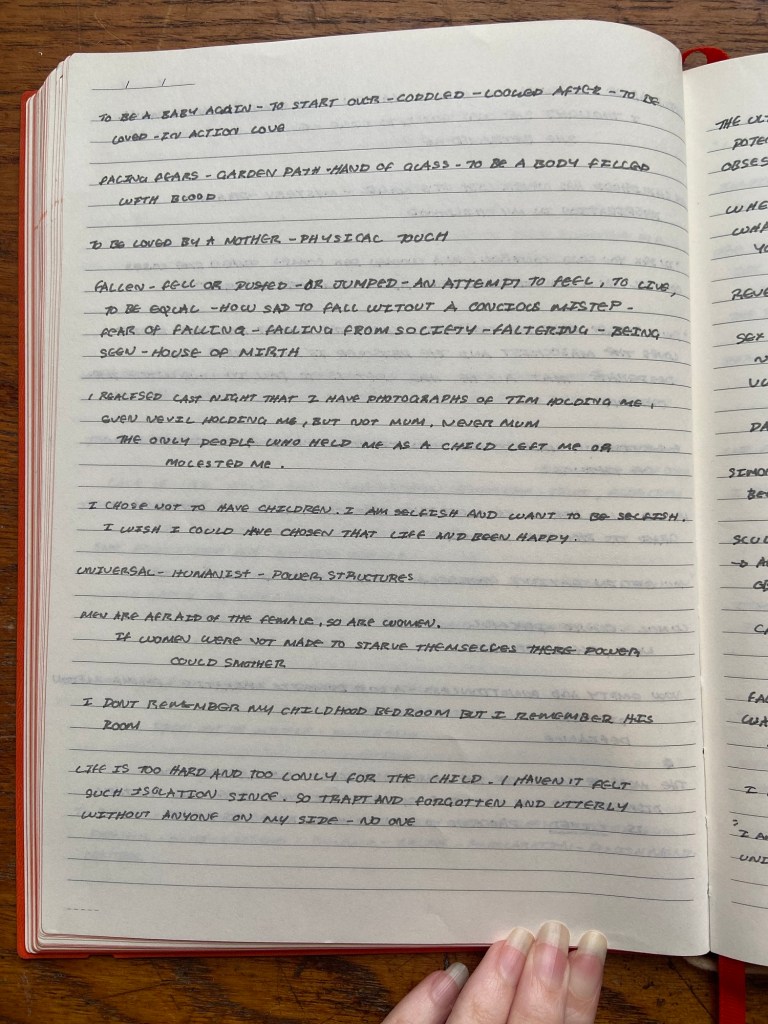 TO BE A BABY AGAIN - TO START OVER - CODDLED - LOOKED AFTER - TO BE
LOVED - IN ACTION LOVE
FACING FEARS - GARDEN PATH - HAND OF GLASS - TO BE A BODY FILLED
WITH BLOOD
TO BE LOVED BY A MOTHER - PHYSICAL TOUCH
FALLEN - FELL OR PUSHED - OR JUMPED - AN ATTEMPT TO FEEL, TO LIVE,
TO BE EQUAL - HOW SAD TO FALL WITOUT A CONCIOUS MISTEP -
FEAR OF FALLING - FALLING FROM SOCIETY - FALTERING - BEING
SEEN - HOUSE OF MIRTH
I REALISED LAST NIGHT THAT I HAVE PHOTOGRAPHS OF TIM HOLDING ME,
EVEN NEVIL HOLDING ME, BUT NOT MUM, NEVER MUM
THE ONLY PEOPLE WHO HELD ME AS A CHILD LEFT ME OR
MOLESTED ME.
I CHOSE NOT TO HAVE CHILDREN. I AM SELFISH AND WANT TO BE SELFISH.
I WISH I COULD HAVE CHOSEN THAT LIFE AND BEEN HAPPY.
UNIVERSAL - HUMANIST - POWER STRUCTURES
MEN ARE AFRAID OF THE FEMALE, SO ARE WOMEN.
IF WOMEN WERE NOT MADE TO STARVE THEMSELVES THERE POWER
COULD SMOTHER
I DONT REMEMBER MY CHILDHOOD BEDROOM BUT I REMEMBER HIS
ROOM
LIFE IS TOO HARD AND TOO LONLY FOR THE CHILD. I HAVEN'T FELT
SUCH ISOLATION SINCE. SO TRAPT AND FORGOTTEN AND UTTERLY
WITHOUT ANYONE ON MY SIDE - NO ONE
THE
SEX
I
I